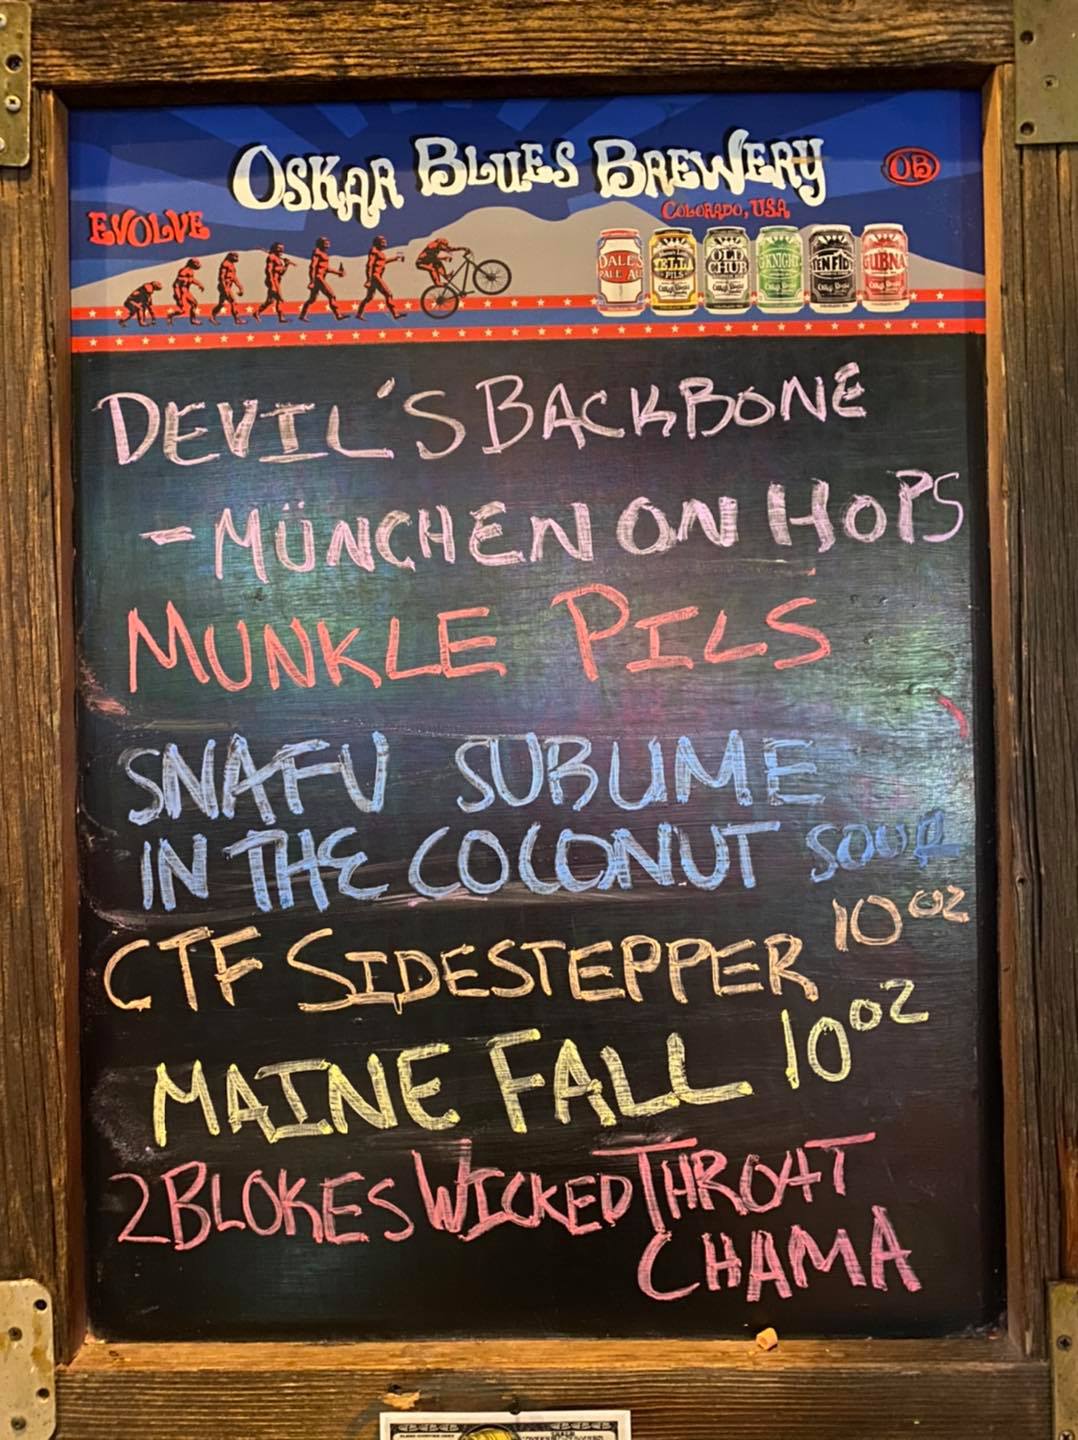 OSKAR BLUES BREWERY
OB
COLORADO, USA
EVOLVE
DALE'S PALE ALE
YELLA PILS
OLD CHUB
G'KNIGHT
TEN FIDY
GUBNA
DEVIL'S BACKBONE
- MÜNCHEN ON HOPS
MUNKLE PILS
SNAFU SUBLIME
IN THE COCONUT SOUR
CTF SIDESTEPPER 10 OZ
MAINE FALL 10 OZ
2 BLOKES WICKED THROAT
CHAMA